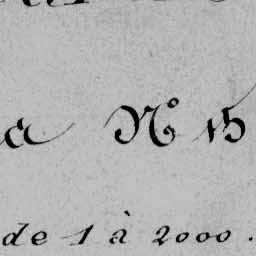 a N° 15
de 1 à 2000.